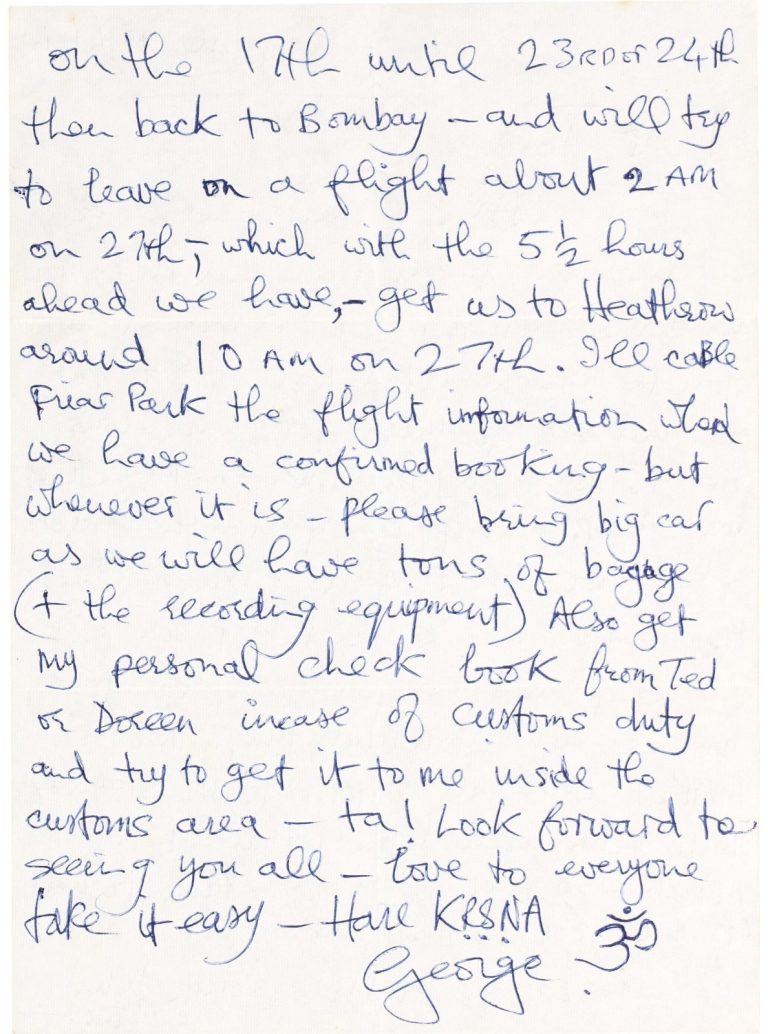 on the 17th until 23RD or 24th
then back to Bombay – and will try
to leave on a flight about 2 AM
on 27th, – which with the 5½ hours
ahead we have, – get us to Heathrow
around 10 AM on 27th. I'll caBle
Friar Park the flight information when
we have a confirmed booking – but
whenever it is – please bring big car
as we will have tons of bagage
(+ the recording equipment) Also get
my personal check book from Ted
or Doreen incase of customs duty
and try to get it to me inside the
customs area – ta! Look forward to
seeing you all – love to everyone
take it easy – Hare KRSNA
George ॐ